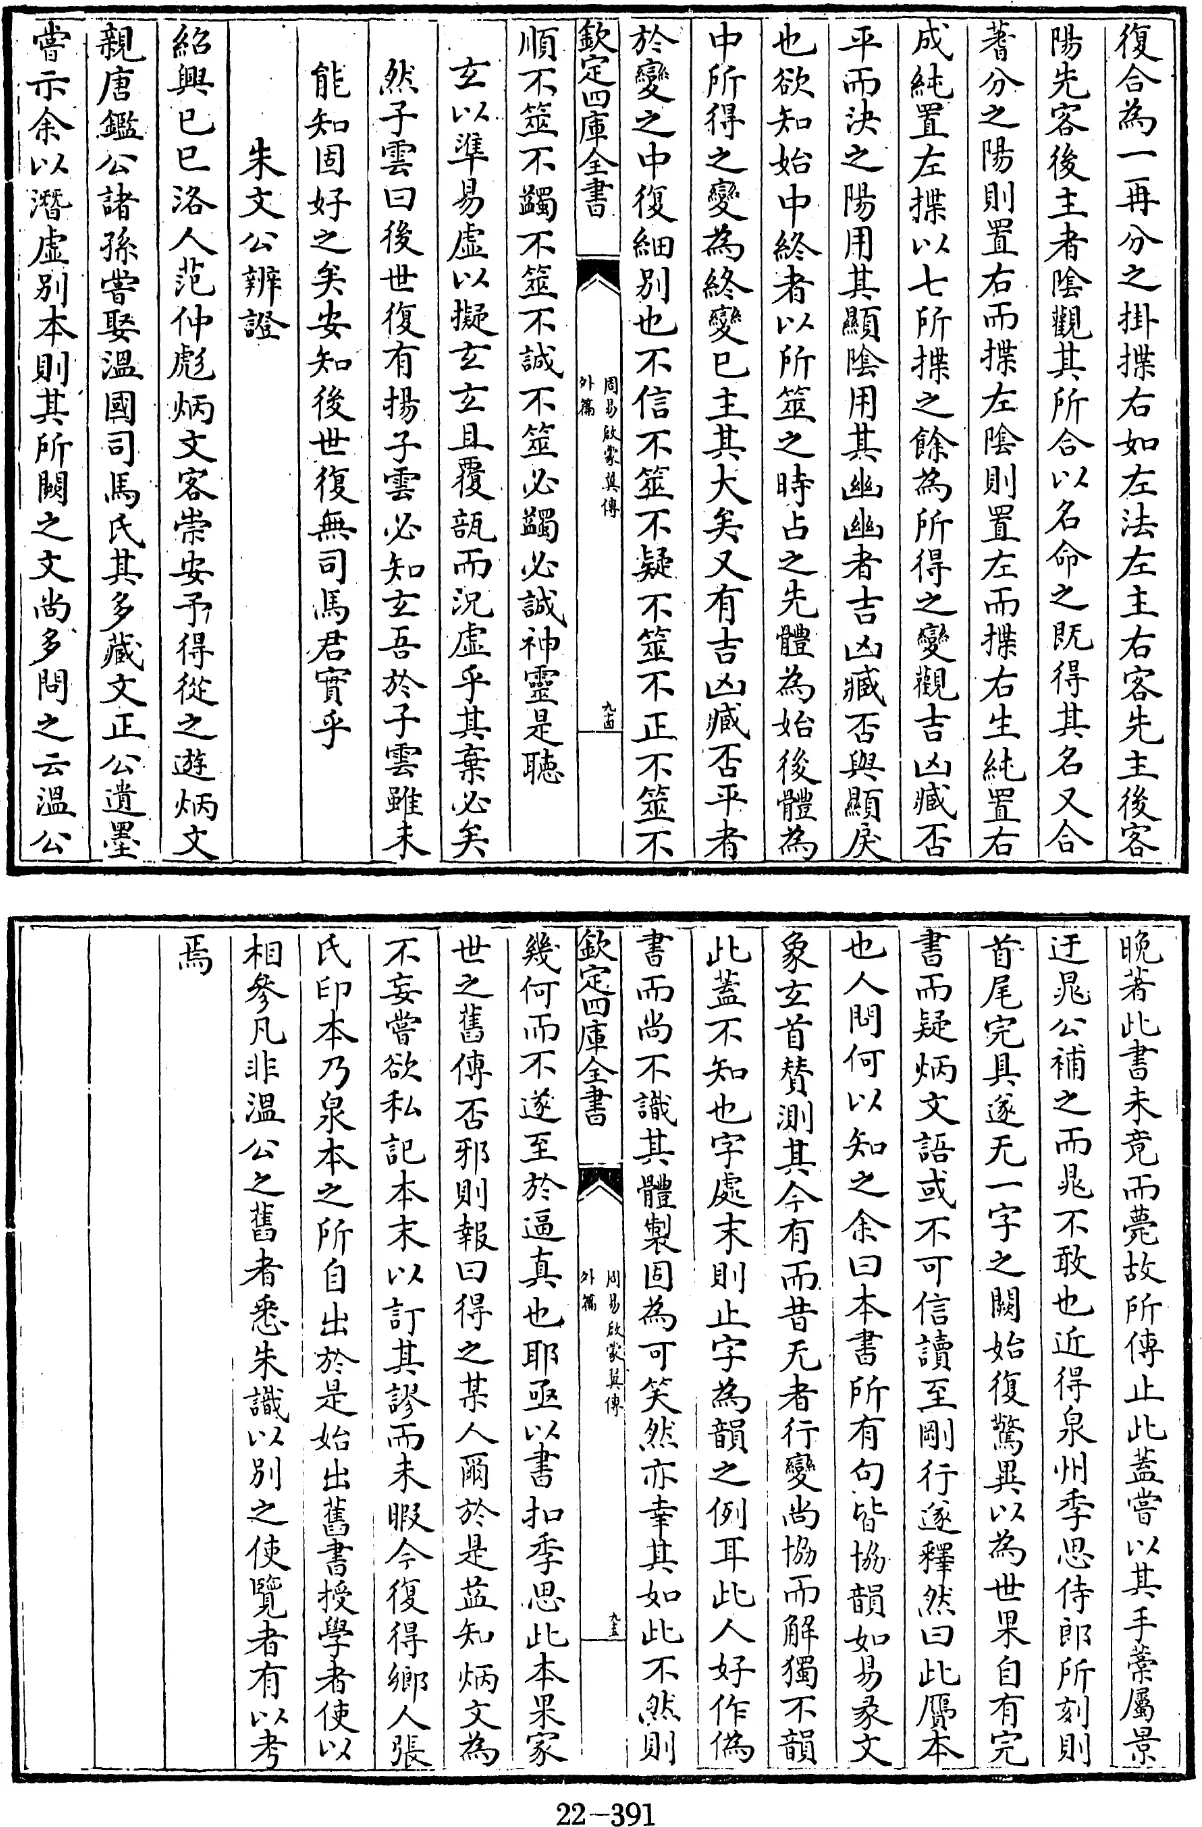 復合為一再分之掛揲右如左法左主右客先主後客
陽先客後主者陰觀其所合以名命之既得其名又合
蓍分之陽則置右而揲左陰則置左而揲右生純置右
成純置左揲以七所揲之餘為所得之變觀吉凶臧否
平而決之陽用其顯陰用其幽幽者吉凶臧否與顯戾
也欲知始中終者以所筮之時占之先體為始後體為
中所得之變為終變已主其大矣又有吉凶臧否平者
於變之中復細別也不信不筮不疑不筮不正不筮不
欽定四庫全書
周易啟蒙翼傳
外篇
九十四
順不筮不蠲不筮不誠不筮必蠲必誠神靈是聴
玄以準易虛以擬玄玄且覆瓿而況虛乎其棄必矣
然子雲曰後世復有揚子雲必知玄吾於子雲雖未
能知固好之矣安知後世復無司馬君實乎
朱文公辨證
紹興已巳洛人范仲彪炳文客崇安予得從之遊炳文
親唐鑑公諸孫嘗娶溫國司馬氏其多藏文正公遺墨
嘗示余以潛虛別本則其所闕之文尚多問之云溫公
晚著此書未竟而薨故所傳止此蓋嘗以其手藁屬景
迂晁公補之而晁不敢也近得泉州季思侍郎所刻則
首尾完具遂无一字之闕始復驚異以為世果自有完
書而疑炳文語或不可信讀至剛行遂釋然曰此贋本
也人問何以知之余曰本書所有句皆協韻如易彖文
象玄首贊測其今有而昔无者行變尚協而解獨不韻
此蓋不知也字處末則止字為韻之例耳此人好作偽
書而尚不識其體製固為可笑然亦幸其如此不然則
欽定四庫全書
周易啟蒙翼傳
外篇
九十五
幾何而不遂至於逼真也耶亟以書扣季思此本果家
世之舊傳否邪則報曰得之某人爾於是益知炳文為
不妄嘗欲私記本末以訂其謬而未暇今復得鄉人張
氏印本乃泉本之所自出於是始出舊書授學者使以
相參凡非溫公之舊者悉朱識以別之使覽者有以考
焉
22-391